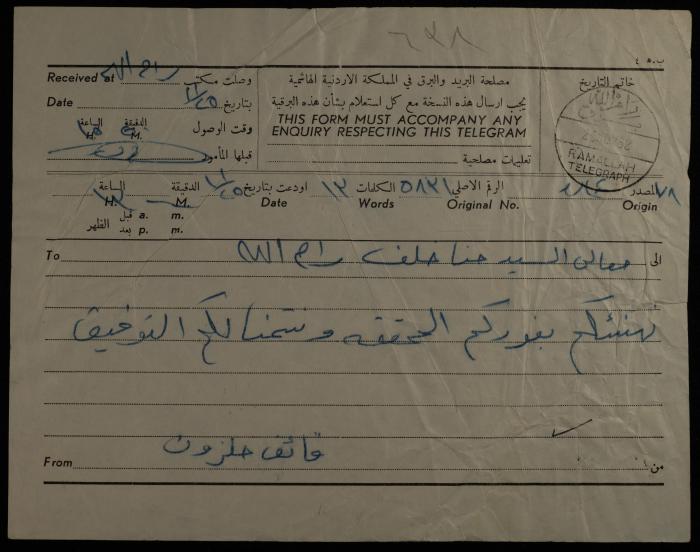 ٦٣٨
ب.ه ٤
Received at رام الله وصلت مكتب
Date بتاريخ
الساعة الدقيقة وقت الوصول
H. M.
قبلها المأمور
مصلحة البريد والبرق في المملكة الاردنية الهاشمية
يجب ارسال هذه النسخة مع كل استعلام بشأن هذه البرقية
THIS FORM MUST ACCOMPANY ANY
ENQUIRY RESPECTING THIS TELEGRAM
تعليمات مصلحية
خاتم التاريخ
رام الله
RAMALLAH
TELEGRAPH
المصدر ٧٨
Origin
الرقم الاصلي ٥٨٣١
Original No.
الكلمات ١٣
Words
اودعت بتاريخ
Date
الساعة الدقيقة
H. M.
قبل a. m.
بعد p. m.
الظهر
To معالي السيد حنا خلف رام الله الى
نهنئكم بفوزكم المحققه ونتمنا لكم التوفيق
From فائف حلزون من